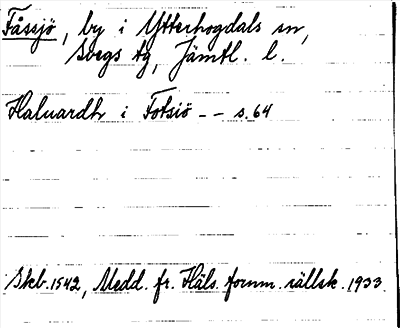 Fåssjö, by i Ytterhogdals sn,
Svegs tg, Jämtl. l.
Haluardh i Fotsiö -- s. 64
Skb. 1542, Medd. fr. Häls. fornm. sällsk. 1933